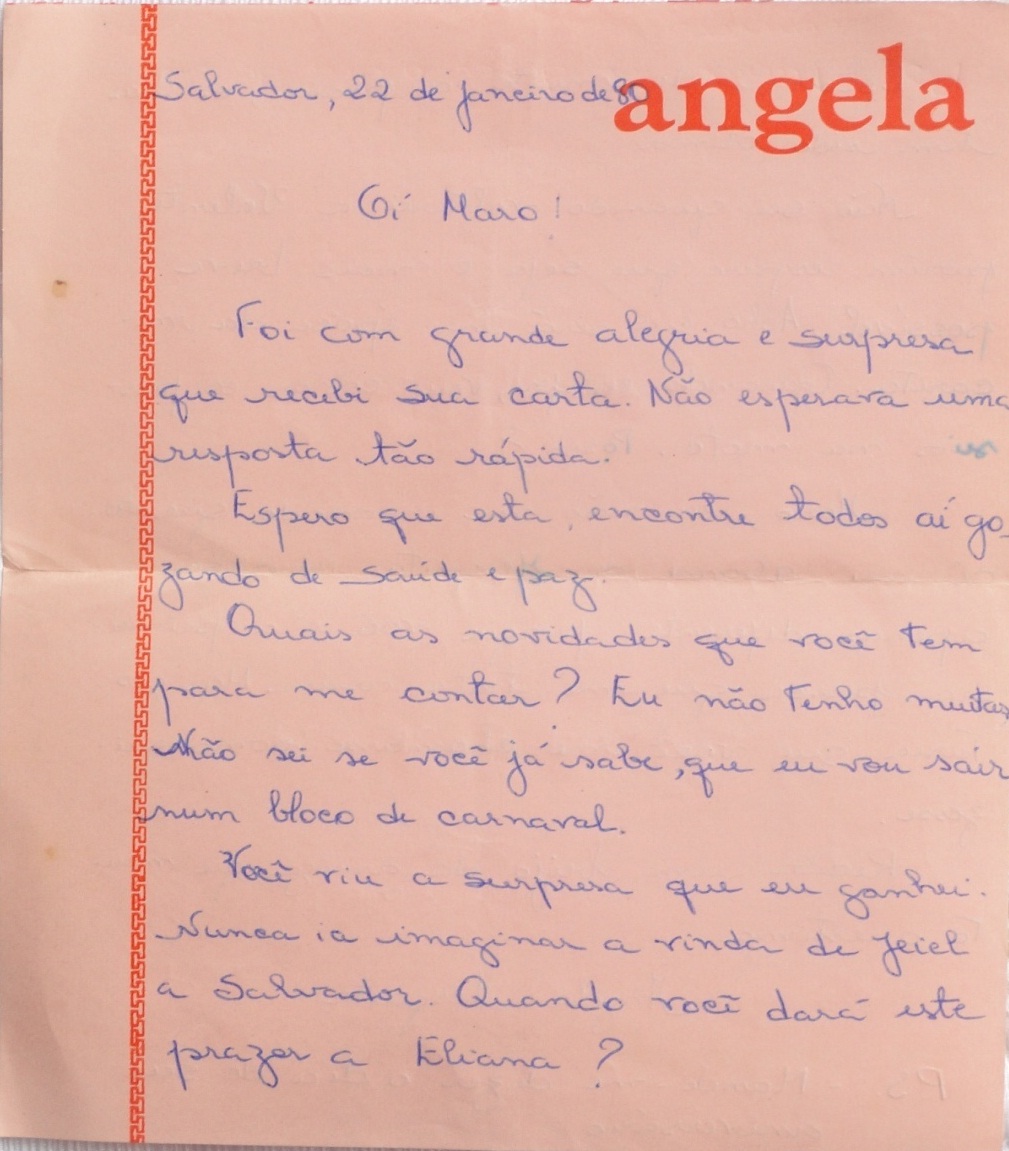 angela
Salvador, 22 de janeiro de 80
Oi Maro!
Foi com grande alegria e surpresa
que recebi sua carta. Não esperava uma
resposta tão rápida.
Espero que esta, encontre todos aí go-
zando de saúde e paz.
Quais as novidades que você tem
para me contar? Eu não tenho muitas
Não sei se você já sabe, que eu vou sair
num bloco de carnaval.
Você viu a surpresa que eu ganhei.
Nunca ia imaginar a vinda de Jeiel
a Salvador. Quando você dará este
prazer a Eliana?